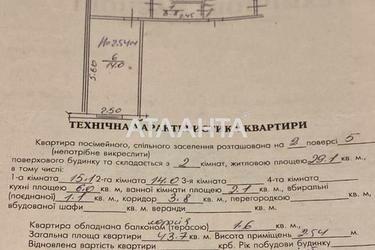 h=254м
6
14.0
5.60
2.50
АТЛАНТА
ТЕХНІЧНА ХАРАКТЕРИСТИКА КВАРТИРИ
Квартира посімейного, спільного заселення розташована на 2 поверсі 5
(непотрібне викреслити)
поверхового будинку та складается з 2 кімнат, житловою площею 29.1 кв. м,
в тому числі:
1-а кімната 15.1 2-а кімната 14.0 3-я кімната 4-та кімната
кухні площею 6.0 кв. м, ванної кімнати площею 2.1 кв. м, вбиральні
(поєднаної) 1.1 кв. м, коридор 3.8 кв. м, перегородкою кв. м,
вбудованої шафи кв. м веранди кв. м.
Квартира обладнана балконом (терасою) 1.6 кв. м.
Загальна площа квартири 43.7 кв. м. Висота приміщень 2.54 м.
Відновлена вартість квартири крб. Рік побудови будинку